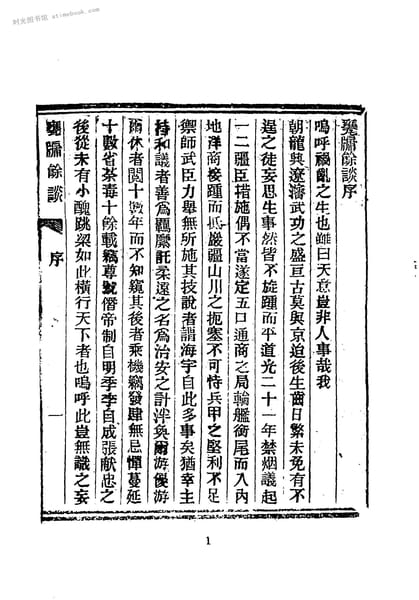 时光图书馆 - xtimebook.com
甕牖餘談序
嗚呼禍亂之生也雖曰天意豈非人事哉我
朝龍興遼瀋武功之盛亘古莫與京迨後生齒日繁未免有不
逞之徒妄思生事然皆不旋踵而平道光二十一年禁烟議起
一二疆臣措施偶不當遂定五口通商之局輪艦銜尾而入內
地洋商接踵而抵嚴疆山川之扼塞不可恃兵甲之堅利不足
禦師武臣力舉無所施其技說者謂海宇自此多事矣猶幸主
持和議者善爲羈縻託柔遠之名爲治安之計泮奐爾游優游
爾休者閱十數年而不知窺其後者乘機竊發肆無忌憚蔓延
十數省荼毒十餘載竊尊號僭帝制自明季李自成張献忠之
後從未有小醜跳梁如此橫行天下者也嗚呼此豈無識之妄
甕牖餘談
序
一
1